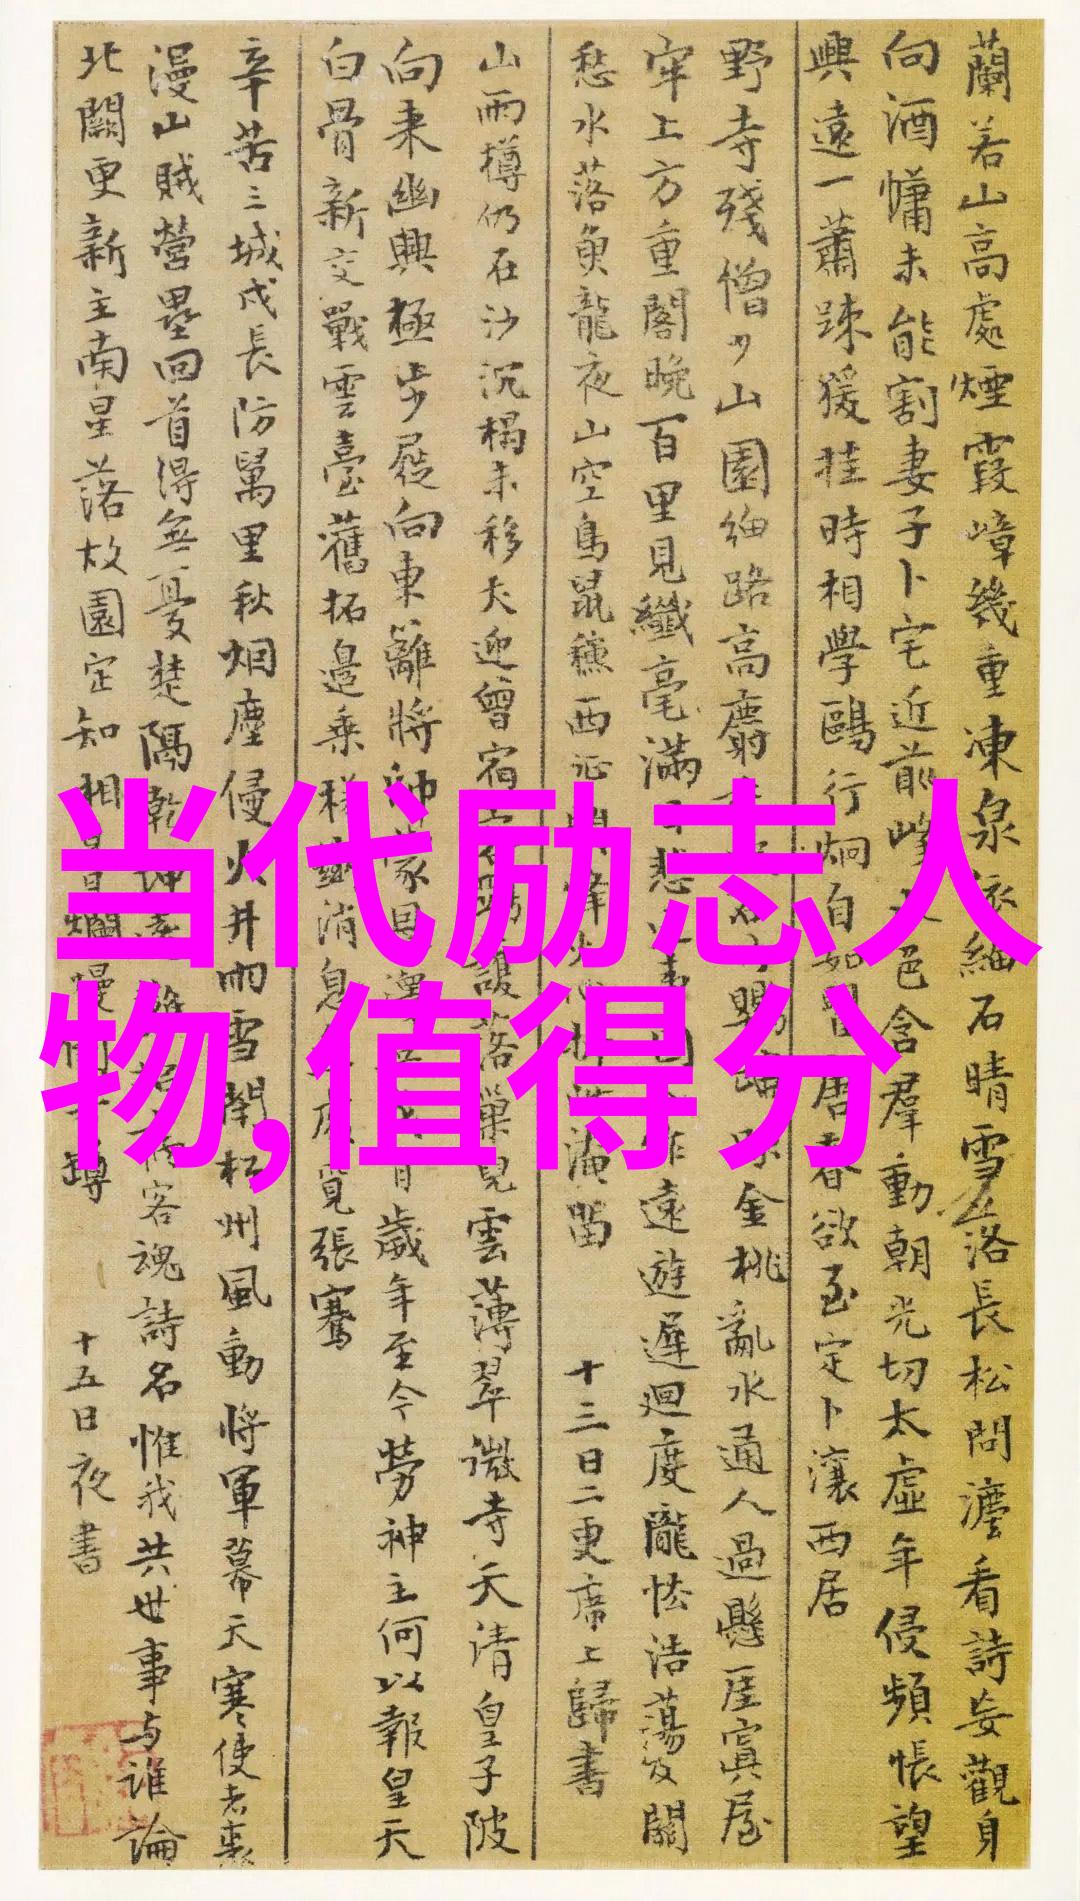 蘭若山高處煙霞嶂幾重凍泉依細石晴雪落長松問灋看詩妄觀身
向酒慵未能割妻子卜宅近前峰 色含羣動朝光切太虛年侵頻悵望
興遠一蕭踈猨挂時相學鷗行炯自如 居春欲至定卜瀼西居
野寺殘僧少山園細路高麝 金桃亂水通人過懸崖寘屋
牢上方重閣晚百里見纖毫滿目悲 遠遊遲迴度隴怯浩蕩及關
愁水落魚龍夜山空鳥鼠穐西 留 十三日二更席上歸書
山雨樽仍在沙沉榻未移犬迎曾宿 落巢兒雲薄翠微寺天清皇子陂
向来幽興極步屧向東籬將 歲年至今勞神主何以報皇天
白骨新交戰雲臺舊拓邊乘 消息 覓張騫
辛苦三城戍長防萬里秋烟塵侵火井雨雪閉松州風動將軍幕天寒使者裘
漫山賊營壘回首得無憂楚隅乾 客魂詩名惟我共世事与誰論
北闕更新主南星落故園定知相 罇 十五日夜書
当代励志人
物,值得分